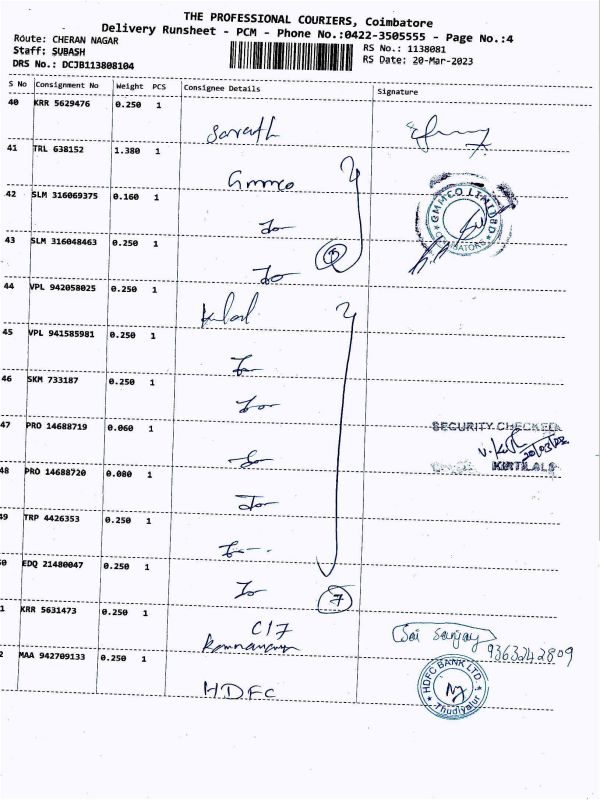 THE PROFESSIONAL COURIERS, Coimbatore
Delivery Runsheet - PCM - Phone No.:0422-3505555 - Page No.:4
Route: CHERAN NAGAR
Staff: SUBASH
DRS No.: DCJB113808104
RS No.: 1138081
RS Date: 20-Mar-2023
S No Consignment No Weight PCS Consignee Details Signature
40 KRR 5629476 0.250 1
Sarath
41 TRL 638152 1.380 1
Gmmco
42 SLM 316069375 0.160 1
Do
43 SLM 316048463 0.250 1
Do
GMMCO LIMITED
44 VPL 942058025 0.250 1
45 VPL 941585981 0.250 1
Do
46 SKM 733187 0.250 1
Do
47 PRO 14688719 0.060 1
Do
SECURITY CHECKED
20/03/23
KIRTILALS
48 PRO 14688720 0.080 1
Do
49 TRP 4426353 0.250 1
Do
0 EDQ 21480047 0.250 1
Do 7
1 KRR 5631473 0.250 1
C17
Sai Sanjay
9363242809
2 MAA 942709133 0.250 1
HDFC
HDFC BANK LTD.
Thudiyalur